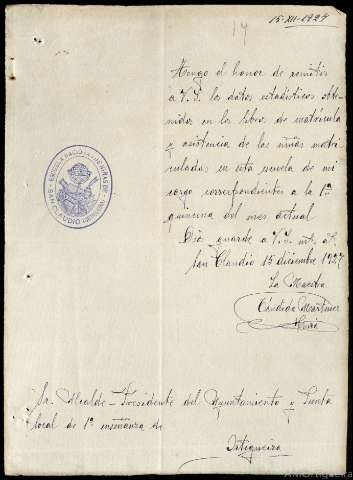 15-XII-1927
14
Tengo el honor de remitir
a V.S. los datos estadísticos obte-
nidos en los libros de matrícula
y asistencia de las niñas matri-
culadas en esta escuela de mi
cargo correspondientes a la 1ª
quincena del mes actual
Dios guarde a V.S. m. a.
San Claudio 15 diciembre 1927
La Maestra
Cándida Martínez
SAN CLAUDIO
Sr. Alcalde-Presidente del Ayuntamiento y Junta
local de 1ª enseñanza de
Ortigueira